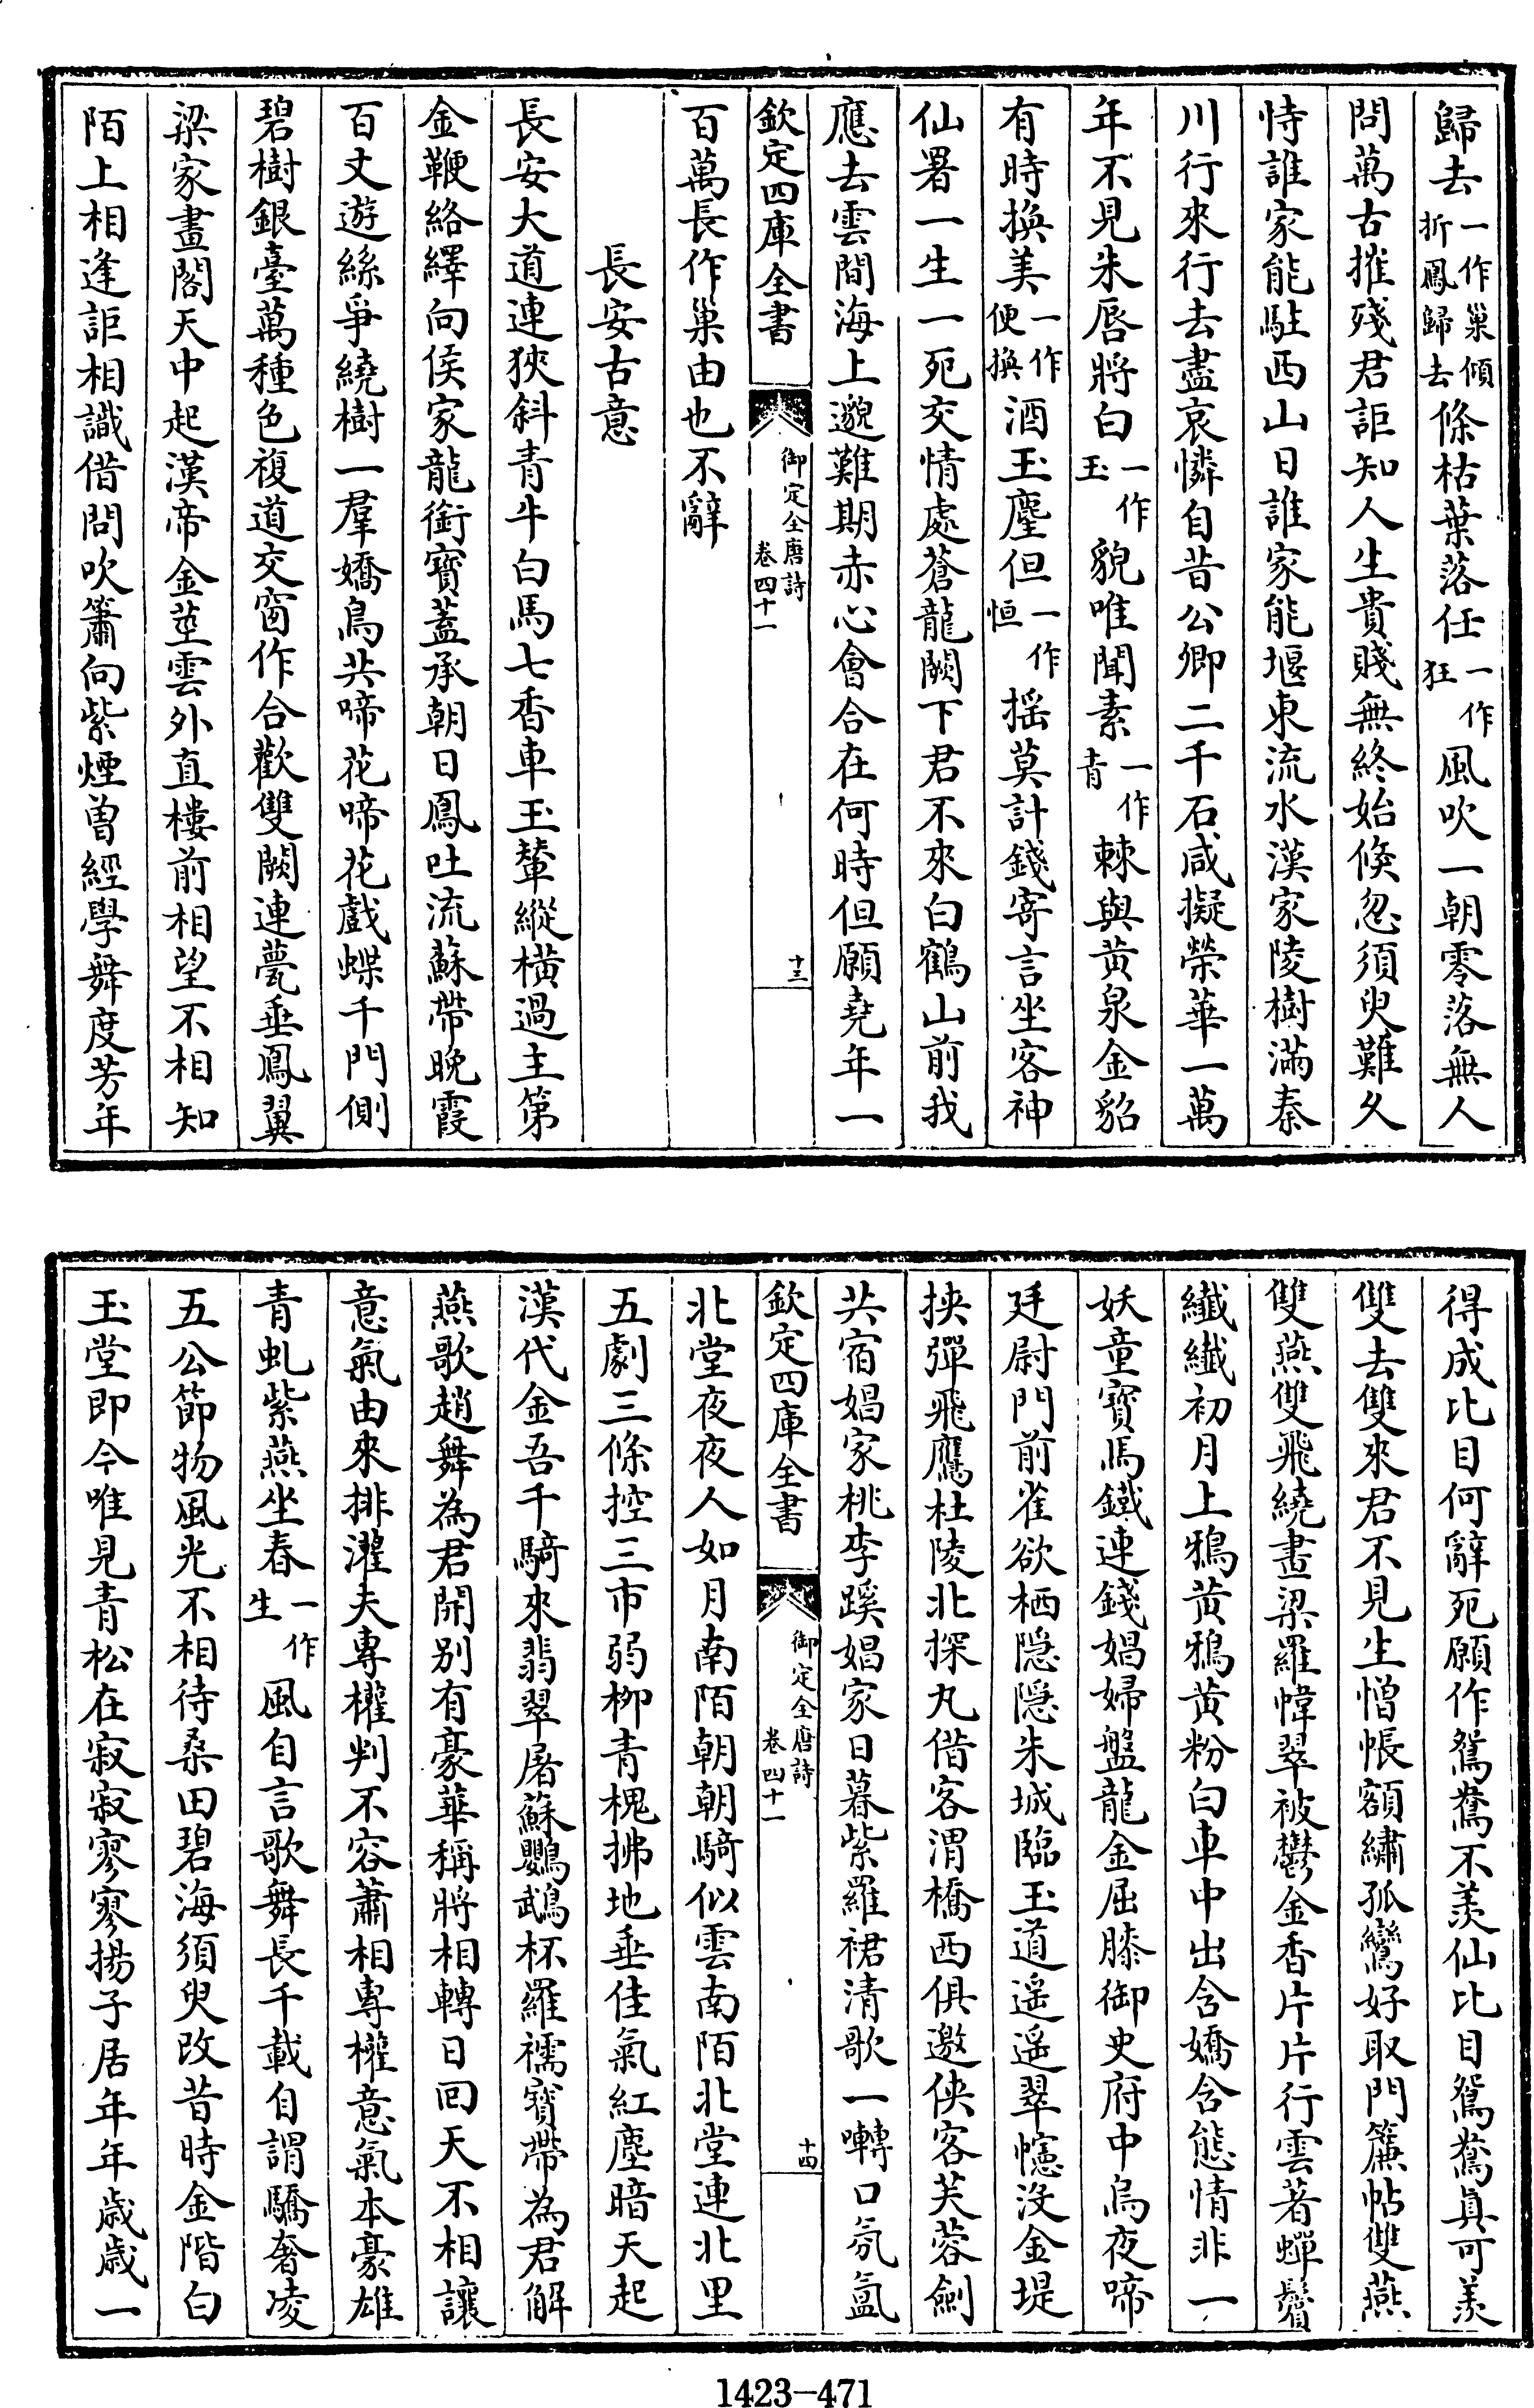 歸去一作巢傾折鳳歸去條枯葉落任一作狂風吹一朝零落無人
問萬古摧殘君詎知人生貴賤無終始倐忽須臾難久
恃誰家能駐西山日誰家能堰東流水漢家陵樹滿秦
川行來行去盡哀憐自昔公卿二千石咸擬榮華一萬
年不見朱唇將白一作玉貌唯聞素一作青棘與黃泉金貂
有時換美一作便換酒玉塵但一作恒搖莫計錢寄言坐客神
仙署一生一死交情處蒼龍闕下君不來白鶴山前我
應去雲間海上邈難期赤心會合在何時但願堯年一
欽定四庫全書
御定全唐詩
卷四十一
十三
百萬長作巢由也不辭
長安古意
長安大道連狹斜青牛白馬七香車玉輦縱橫過主第
金鞭絡繹向侯家龍銜寶蓋承朝日鳳吐流蘇帶晚霞
百丈遊絲爭繞樹一羣嬌鳥共啼花啼花戲蝶千門側
碧樹銀臺萬種色複道交窗作合歡雙闕連甍垂鳳翼
梁家畫閣天中起漢帝金莖雲外直樓前相望不相知
陌上相逢詎相識借問吹簫向紫煙曽經學舞度芳年
得成比目何辭死願作鴛鴦不羨仙比目鴛鴦真可羨
雙去雙來君不見生憎帳額繡孤鸞好取門簾帖雙燕
雙燕雙飛繞畫梁羅幃翠被鬱金香片片行雲著蟬鬢
纖纖初月上鴉黃鴉黃粉白車中出含嬌含態情非一
妖童寶馬鐵連錢娼婦盤龍金屈膝御史府中烏夜啼
廷尉門前雀欲栖隱隱朱城臨玉道遥遥翠幰没金堤
挾彈飛鷹杜陵北探丸借客渭橋西俱邀俠客芙蓉劍
共宿娼家桃李蹊娼家日暮紫羅裙清歌一囀口氛氳
欽定四庫全書
御定全唐詩
卷四十一
十四
北堂夜夜人如月南陌朝朝騎似雲南陌北堂連北里
五劇三條控三市弱柳青槐拂地垂佳氣紅塵暗天起
漢代金吾千騎來翡翠屠蘇鸚鵡杯羅襦寶帶為君解
燕歌趙舞為君開别有豪華稱將相轉日回天不相讓
意氣由來排灌夫專權判不容蕭相專權意氣本豪雄
青虬紫燕坐春一作生風自言歌舞長千載自謂驕奢凌
五公節物風光不相待桑田碧海須臾改昔時金階白
玉堂即今唯見青松在寂寂寥寥揚子居年年歲歲一
1423-471